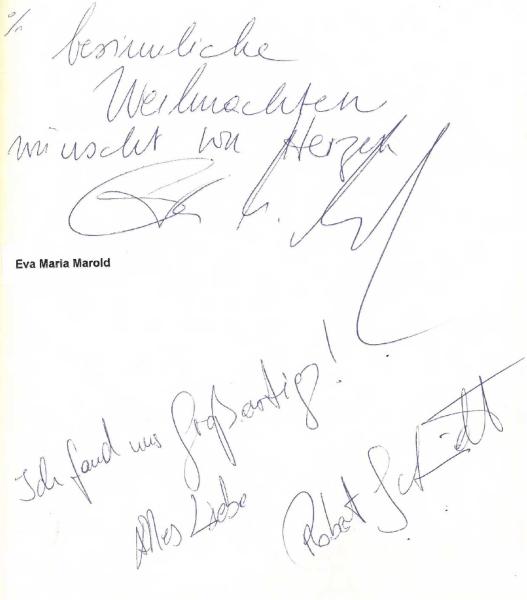 besinnliche
Weihnachten
wünscht von Herzen
Eva Maria Marold
Ich fand uns großartig!
Alles Liebe
Robert